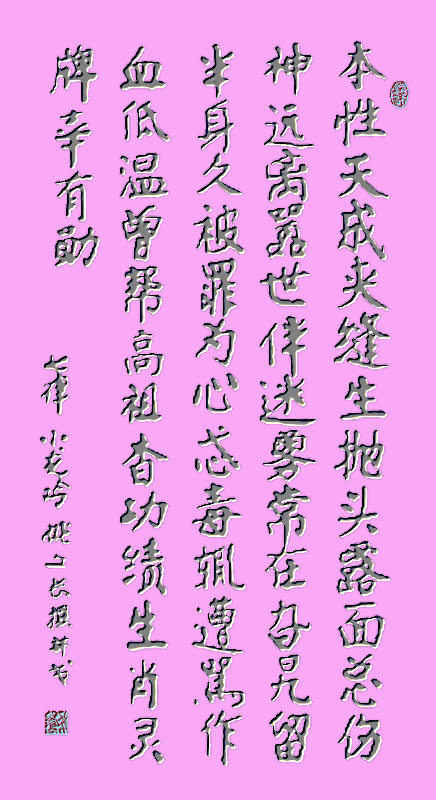 本性天成夹缝生抛头露面总伤
神远离嚣世伴迷雾常在旮旯留
半身久被罪为心忒毒辄遭骂作
血低温曾帮高祖功绩生肖灵
牌幸有勋
七律 小龙吟 姚长撰并书